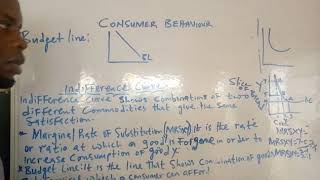 CONSUMER BEHAVIOUR
Budget line:
BL
Indifference Curve
Indifference Curve Shows Combinations of two
different Commodities that give the same
Satisfaction.
* Marginal Rate of Substitution (MRSxy) it is the rate
or ratio at which a good is Forgone in order to
Increase Consumption of good x.
* Budget Line: It is the line That Shows Combination of goods
a consumer can affor
Slice
OF
IC
MRSxy=
MRSxy=
MRSxy=